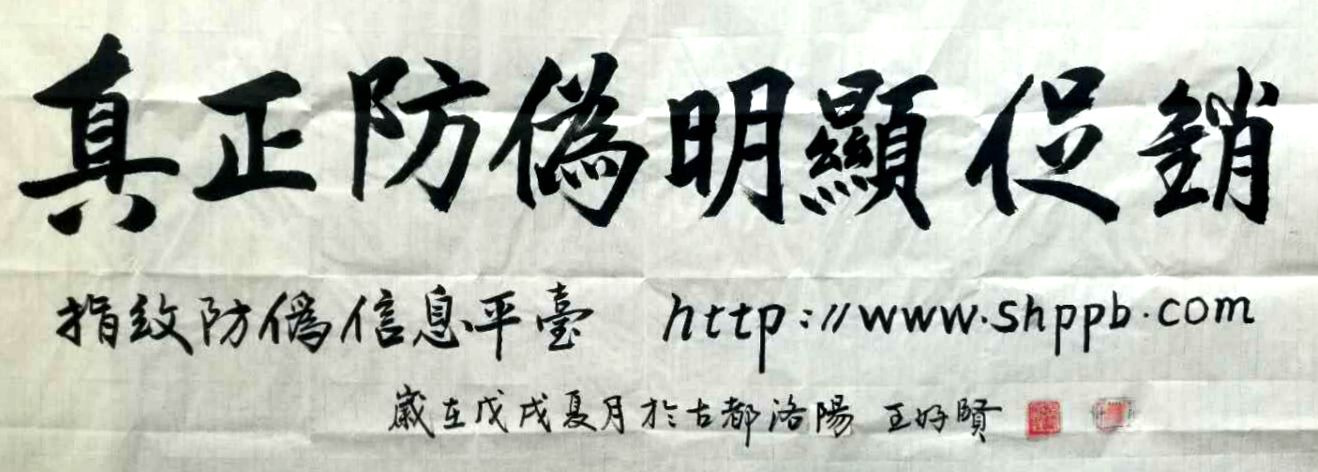 真正防偽明顯促銷
指紋防偽信息平臺 http://www.shppb.com
歲在戊戌夏月於古都洛陽 王好賢